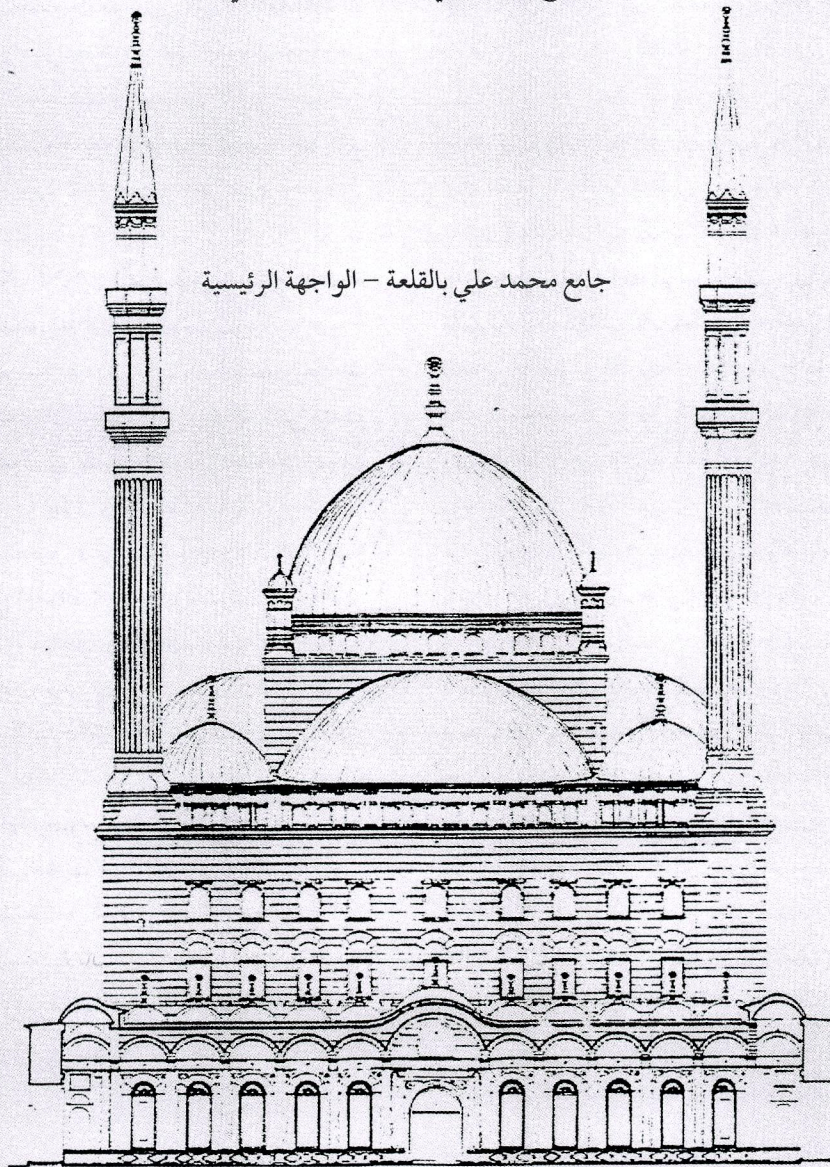 جامع محمد علي بالقلعة – الواجهة الرئيسية